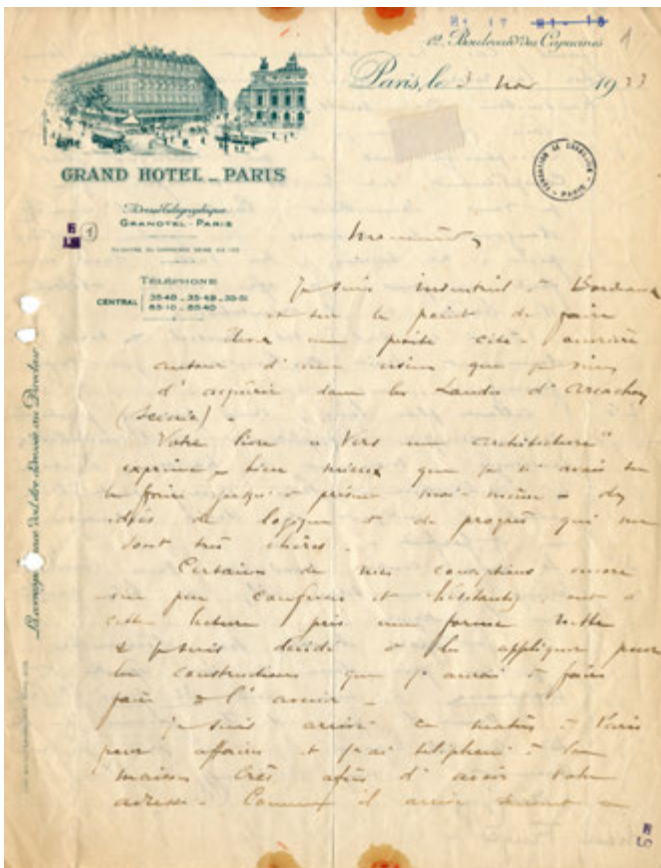 12, Boulevard des Capucines
Paris, le 3 Nov 1923
GRAND HOTEL _ PARIS
Adresse Télégraphique
GRANOTEL - PARIS
TÉLÉPHONE
CENTRAL 35-48 _ 35-49 _ 35-51
FONDATION LE CORBUSIER
PARIS
Monsieur,
Je suis industriel à Bordeaux
et sur le point de faire
élever une petite cité ouvrière
autour d'une usine que je viens
d'acquérir dans les Landes d'Arcachon
(Scierie) -
Votre livre "Vers une architecture"
exprime - bien mieux que je n'avais su
le faire jusqu'à présent moi-même - des
idées de logique et de progrès qui me
sont très chères.
Certaines de mes conceptions encore
un peu confuses et hésitantes ont à
cette lecture pris une forme nette
& je suis décidé à les appliquer pour
les constructions que j'aurai à faire
faire à l'avenir -
Je suis arrivé ce matin à Paris
pour affaires et j'ai téléphoné à la
maison Crès afin d'avoir votre
adresse - Comme il arrive souvent -